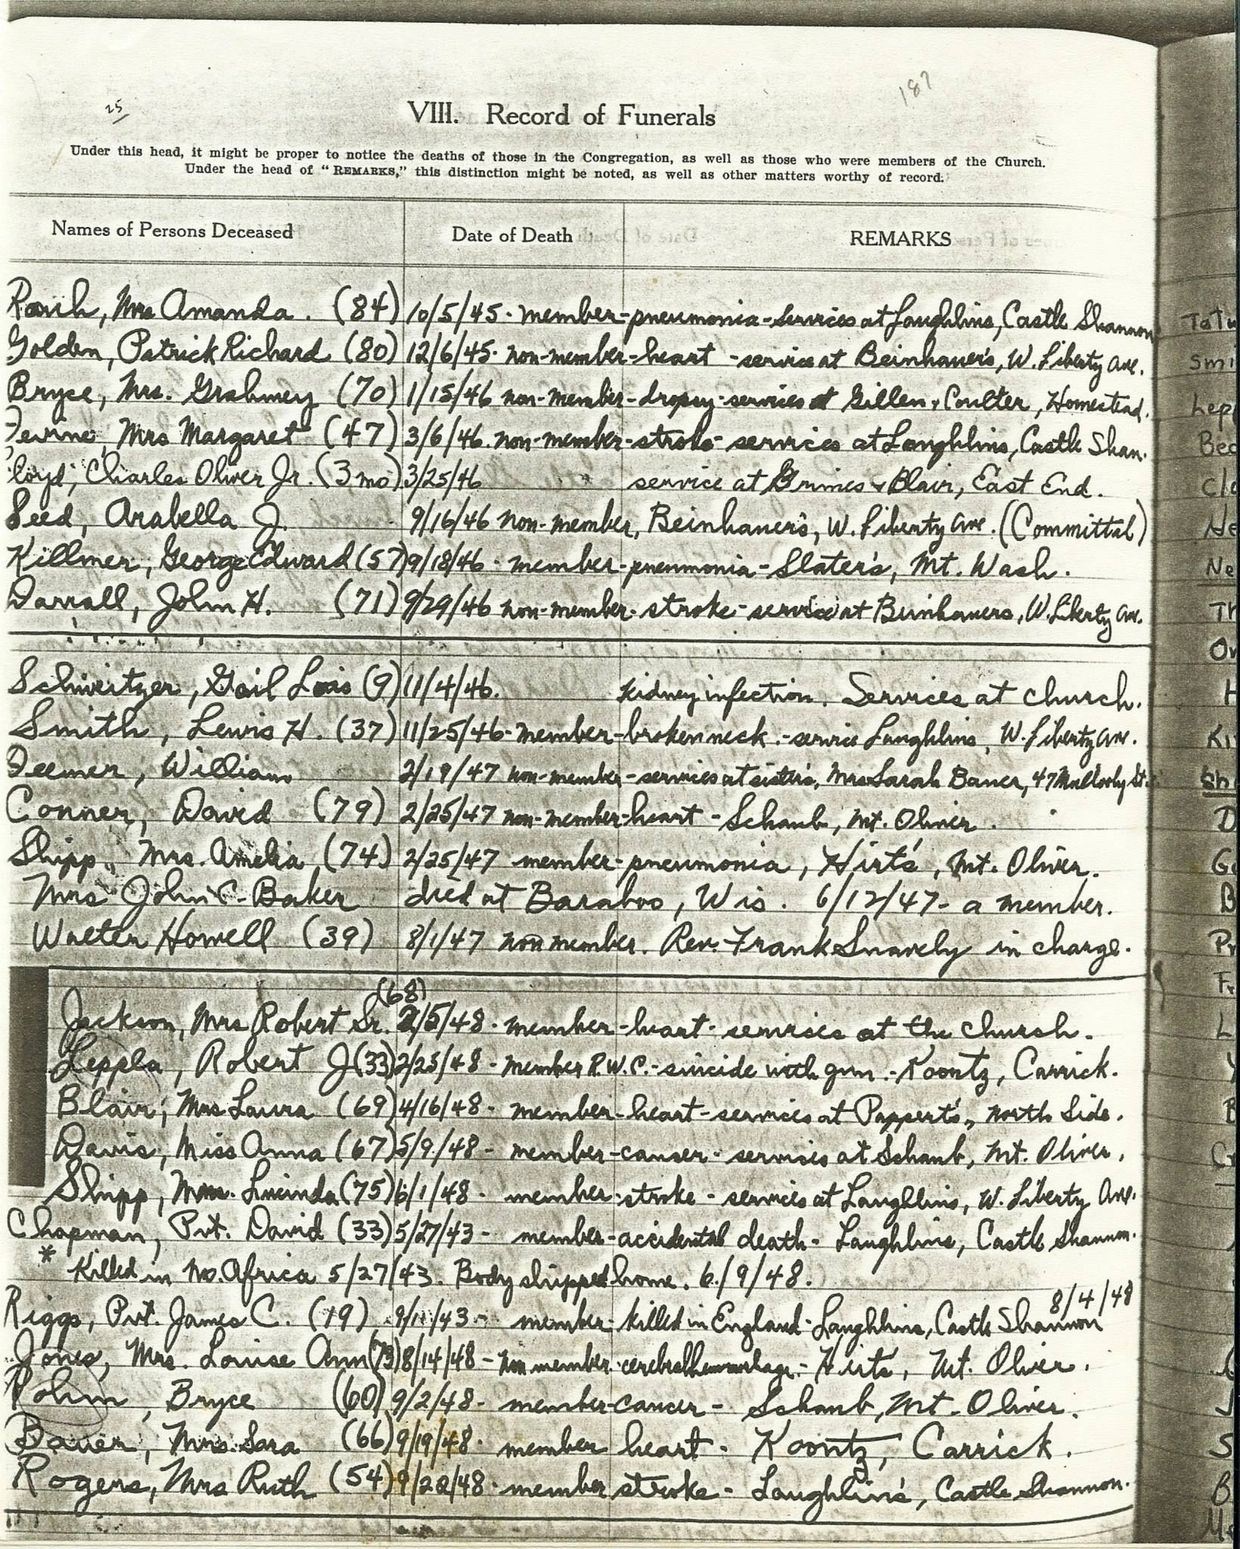 25
187
VIII. Record of Funerals
Under this head, it might be proper to notice the deaths of those in the Congregation, as well as those who were members of the Church.
Under the head of "REMARKS," this distinction might be noted, as well as other matters worthy of record.
Names of Persons Deceased Date of Death REMARKS
Mrs Amanda. (84) 10/5/45 - member - pneumonia - services at Laughlins, Castle Shannon
Golden, Patrick Richard (80) 12/6/45 - non-member - heart - service at Beinhauer's, W. Liberty Ave.
Bryce, Mrs. (70) 1/15/46 non-member - dropsy - services at Gillen & Coulter, Homestead.
Mrs Margaret (47) 3/6/46 non-member - stroke - services at Laughlins, Castle Shan.
loyd, Charles Oliver Jr. (3 mo) 3/25/46 service at Grimes & Blair, East End.
Seed, Arabella J. 9/16/46 non-member, Beinhauer's, W. Liberty Ave. (Committal)
Killmer, George Edward (57) 9/18/46 - member - pneumonia - Slater's, Mt. Wash.
Darrall, John H. (71) 9/29/46 non-member - stroke - service at Beinhauers, W. Liberty Ave.
Schweitzer, Gail Lois (9) 11/4/46. Kidney infection. Services at church.
Smith, Lewis H. (37) 11/25/46 - member - broken neck - service Laughlins, W. Liberty Ave.
Deemer, William 2/19/47 non-member - services at sister's, Mrs Sarah Bauer, 47 St.
Conner, David (79) 2/25/47 non-member - heart - Schaub, Mt. Oliver.
Shipp, Mrs. Amelia (74) 2/25/47 member - pneumonia, Hirt's, Mt. Oliver.
Mrs John C. Baker died at Baraboo, Wis. 6/12/47 - a member.
Walter Howell (39) 8/1/47 non member. Rev. Frank Snavely in charge.
Jackson, Mrs Robert Sr. (68) 2/5/48 - member - heart - services at the church.
Leppla, Robert J (33) 2/25/48 - member R.W.C. - suicide with gun - Koontz, Carrick.
Blair, Mrs Laura (69) 4/16/48 - member - heart - services at Pappert's, North Side.
Davis, Miss Anna (67) 5/9/48 - member - cancer - services at Schaub, Mt. Oliver.
Shipp, Mrs. Lucinda (75) 6/1/48 - member - stroke - services at Laughlins, W. Liberty Ave.
Chapman, Pvt. David (33) 5/27/43 - member - accidental death - Laughlins, Castle Shannon.
* Killed in No. Africa 5/27/43. Body shipped home. 6/9/48.
8/4/48
Riggs, Pvt. James C. (19) 9/11/43 - member - killed in England - Laughlins, Castle Shannon
Jones, Mrs. Louise Ann (73) 8/14/48 - non member - cerebral hemorrhage - Hirts, Mt. Oliver.
Bryce (60) 9/2/48 - member - cancer - Schaub, Mt. Oliver.
Bauer, Mrs. Sara (66) 9/19/48 - member heart - Koontz, Carrick.
Rogers, Mrs Ruth (54) 9/22/48 - member stroke - Laughlin's, Castle Shannon.